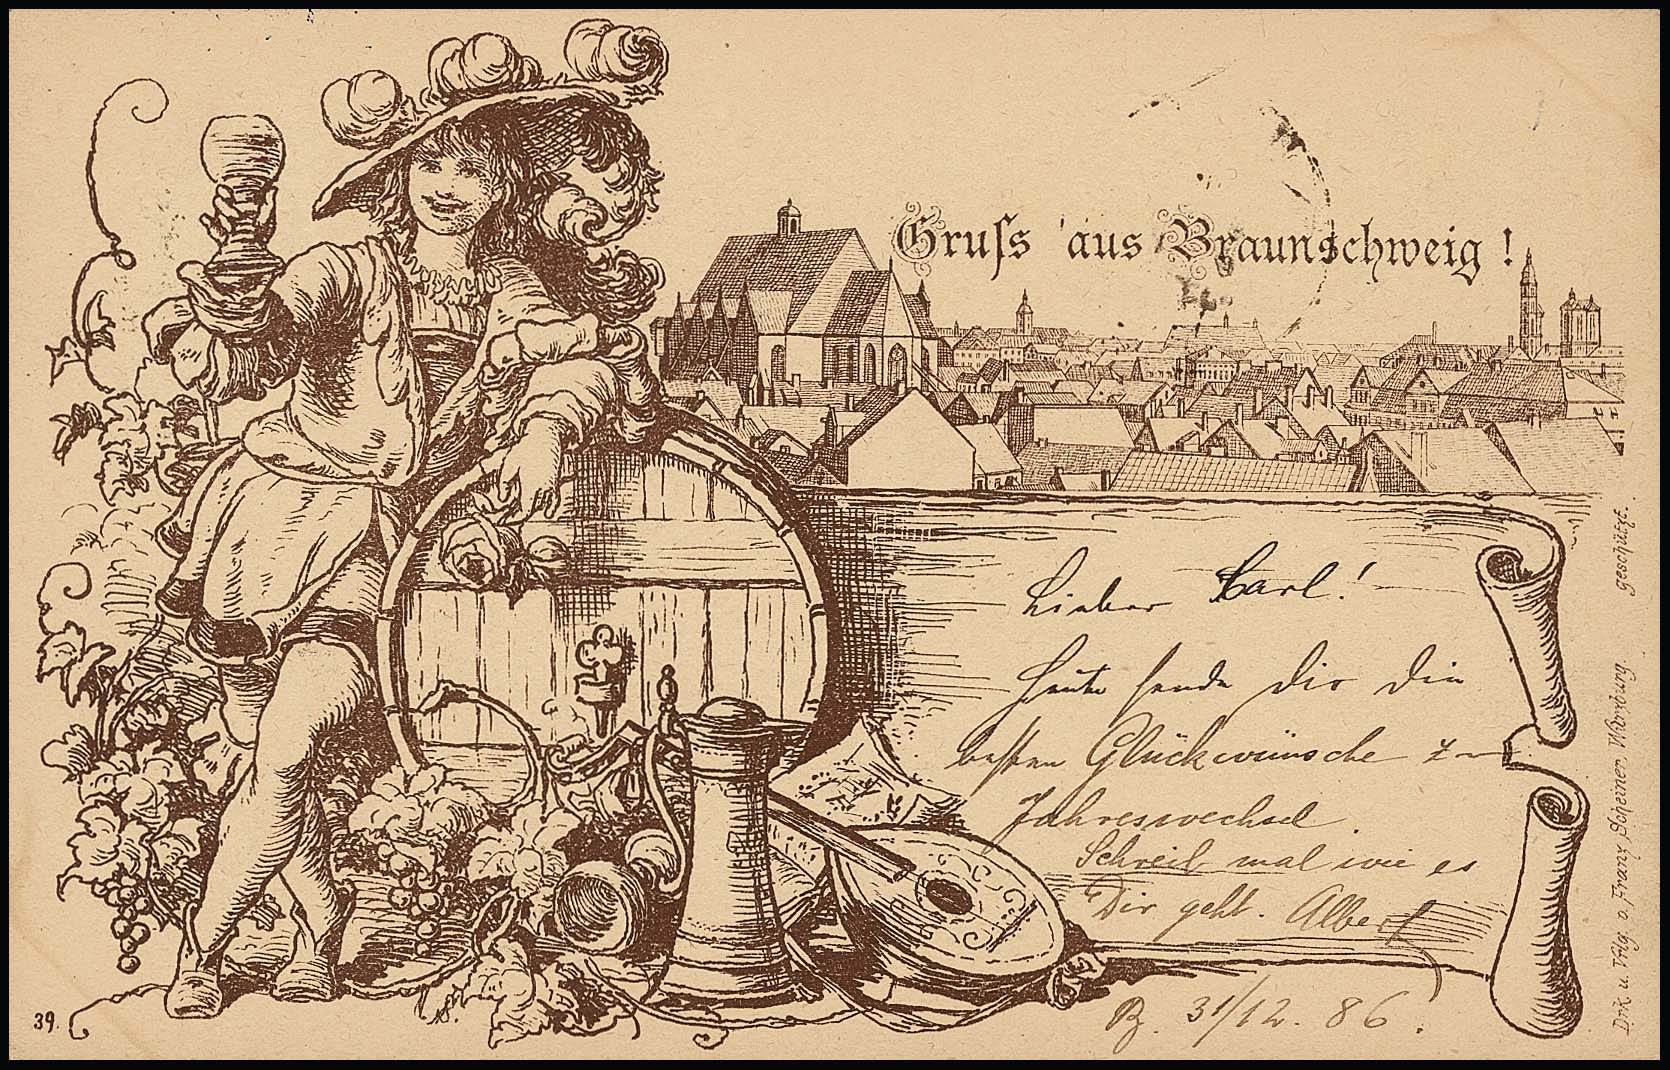 Gruſs aus Braunschweig !
Lieber Carl!
Heute sende Dir die
besten Glückwünsche z
Jahreswechsel.
Schreib mal wie es
Dir geht. Albert
B. 31/12. 86.
39.
Drck u. Vlg. v. Franz Scheiner Würzburg. geschützt.